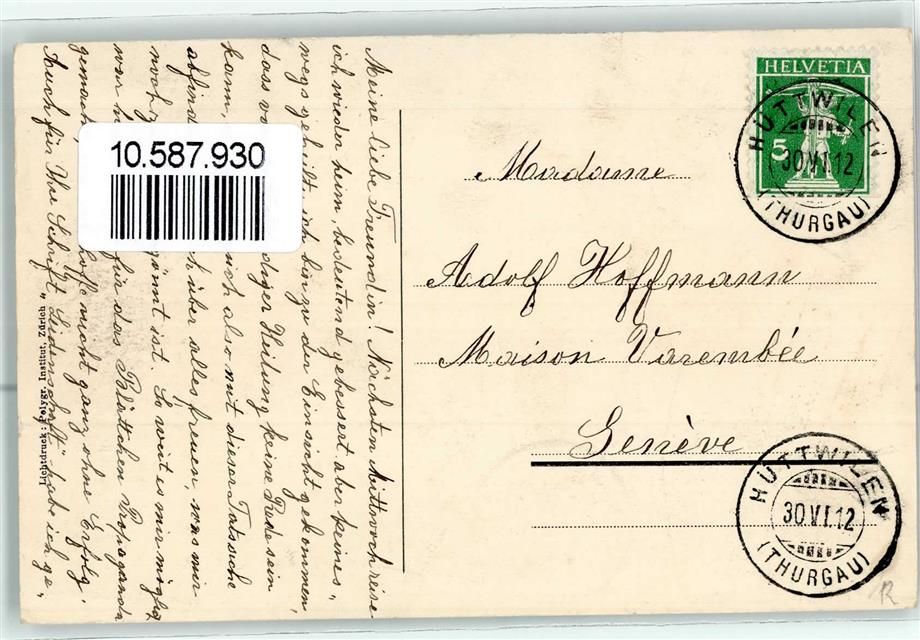 Meine liebe Freundin! Nächsten Mittwoch reise
ich wieder heim, bedeutend gebessert aber keines„
wegs geheilt. ich bin zu der Einsicht gekommen,
dass vo diger Heilung keine Rede sein
kann, mich also mit dieser Tatsache
abfinde h über alles freuen was mir
noch g gönnt ist. So weit es mir möglich
war h für das Blättchen Propaganda
gemacht, hoffe nicht ganz ohne Erfolg.
Auch für Ihre Schrift „Leidenschaft" hab ich ge„
Lichtdruck: Polygr. Institut, Zürich
10.587.930
Madame
Adolf Hoffmann
Maison Varembée
Genève
HELVETIA
5
HÜTTWILEN
30.VI.12
(THURGAU)
HÜTTWILEN
30.VI.12
(THURGAU)
R